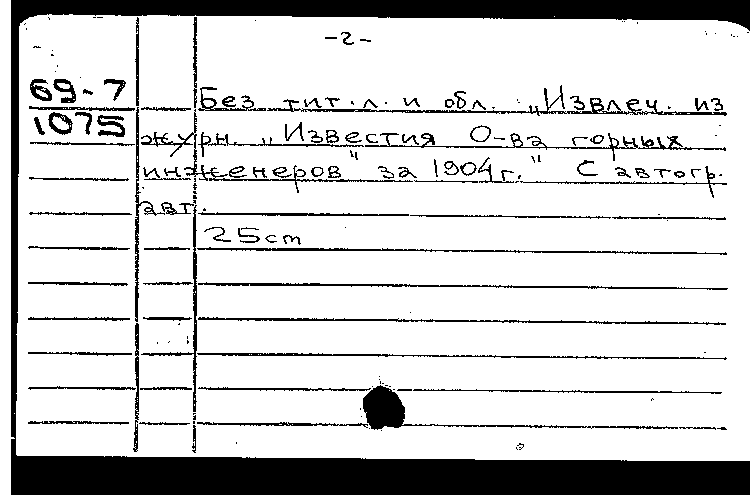 -2-
69-7
1075
Без тит.л. и обл. „Извлеч. из
журн. „Известия О-ва горных
инженеров" за 1904г." С автогр.
авт.
25cm